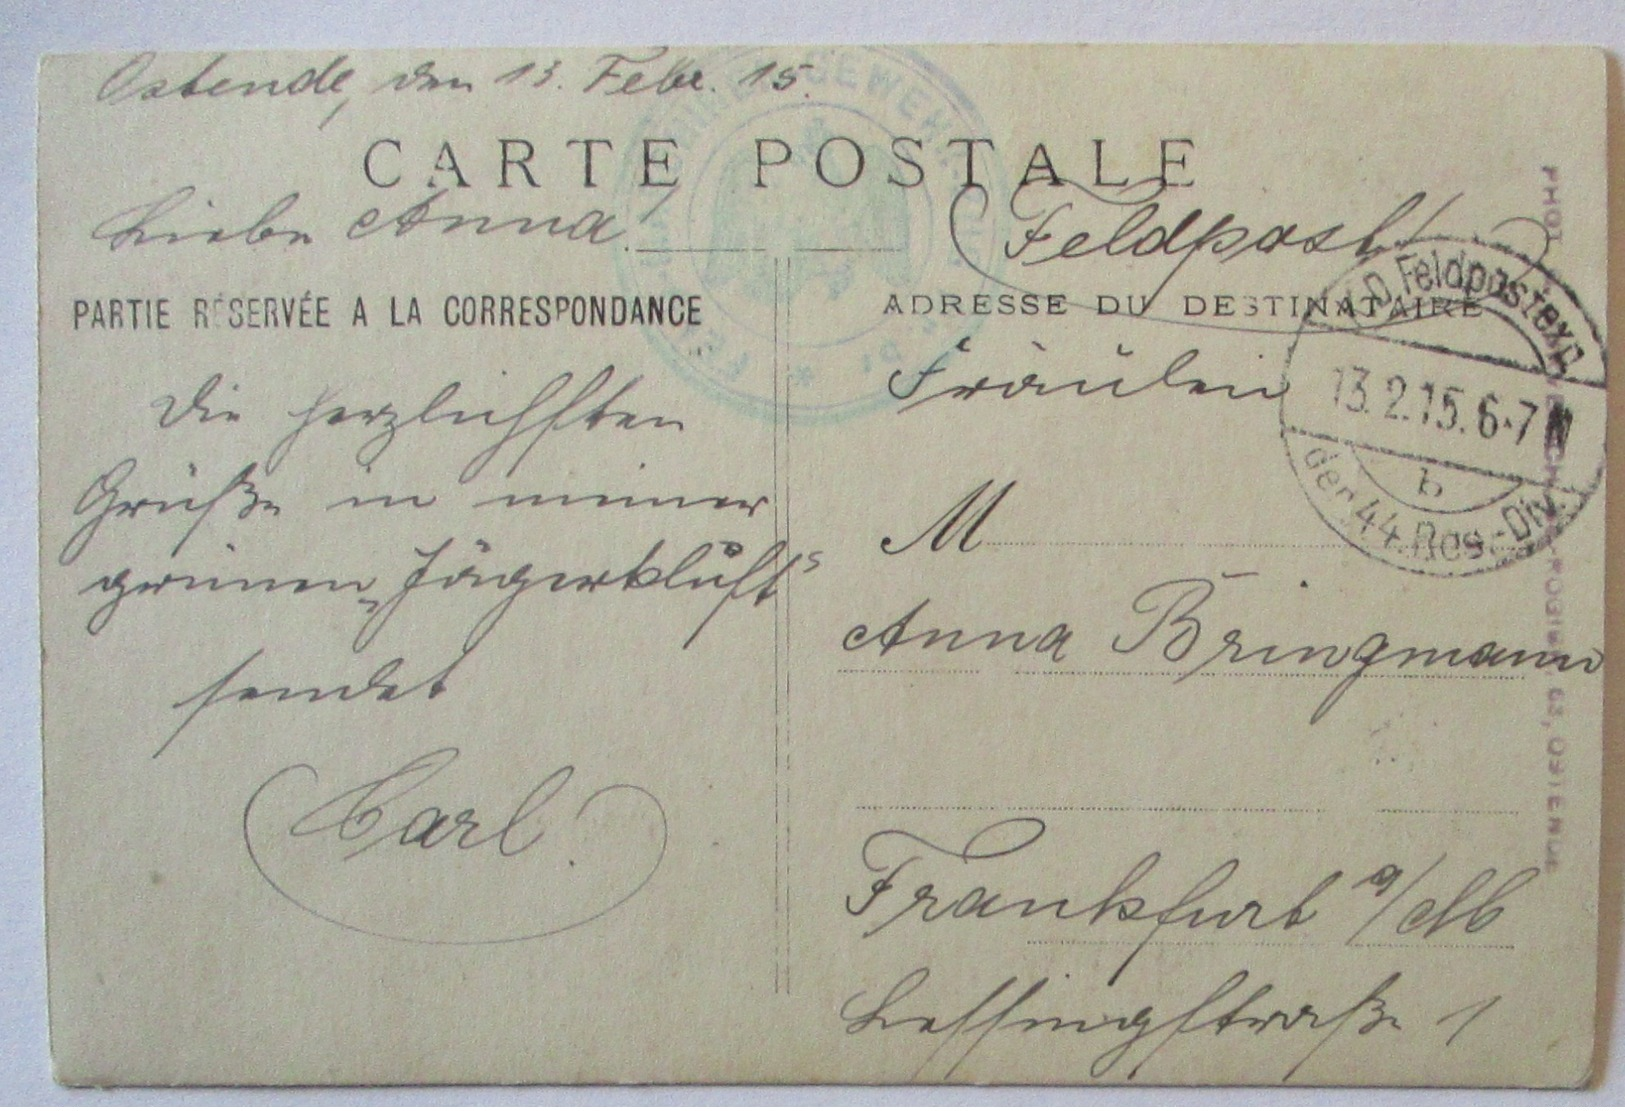 Ostende, den 13. Febr. 15.
CARTE POSTALE
Liebe Anna!
PARTIE RÉSERVÉE A LA CORRESPONDANCE
Die herzlichsten
Grüße in meiner
grünen „Jägerkluft“
sendet
Carl.
Feldpost!
ADRESSE DU DESTINATAIRE
Fräulein
M
Anna Bringmann
Frankfurt a/M
Lessingstraße 1
Feldpostexp.
13.2.15. 6-7 N
b
der 44. Res.-Div.
PHOT.
63, OSTENDE